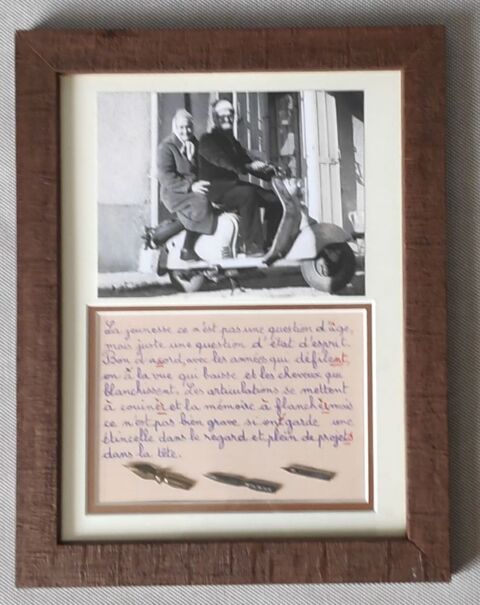 La jeunesse ce n'est pas une question d'âge,
mais juste une question d'état d'esprit.
Bon d'acord, avec les années qui défilent,
on à la vue qui baisse et les cheveux qui
blanchissent. Les articulations se mettent
à couiner et la mémoire à flancher, mais
ce n'est pas bien grave si ont garde une
étincelle dans le regard et plein de projets
dans la tête.